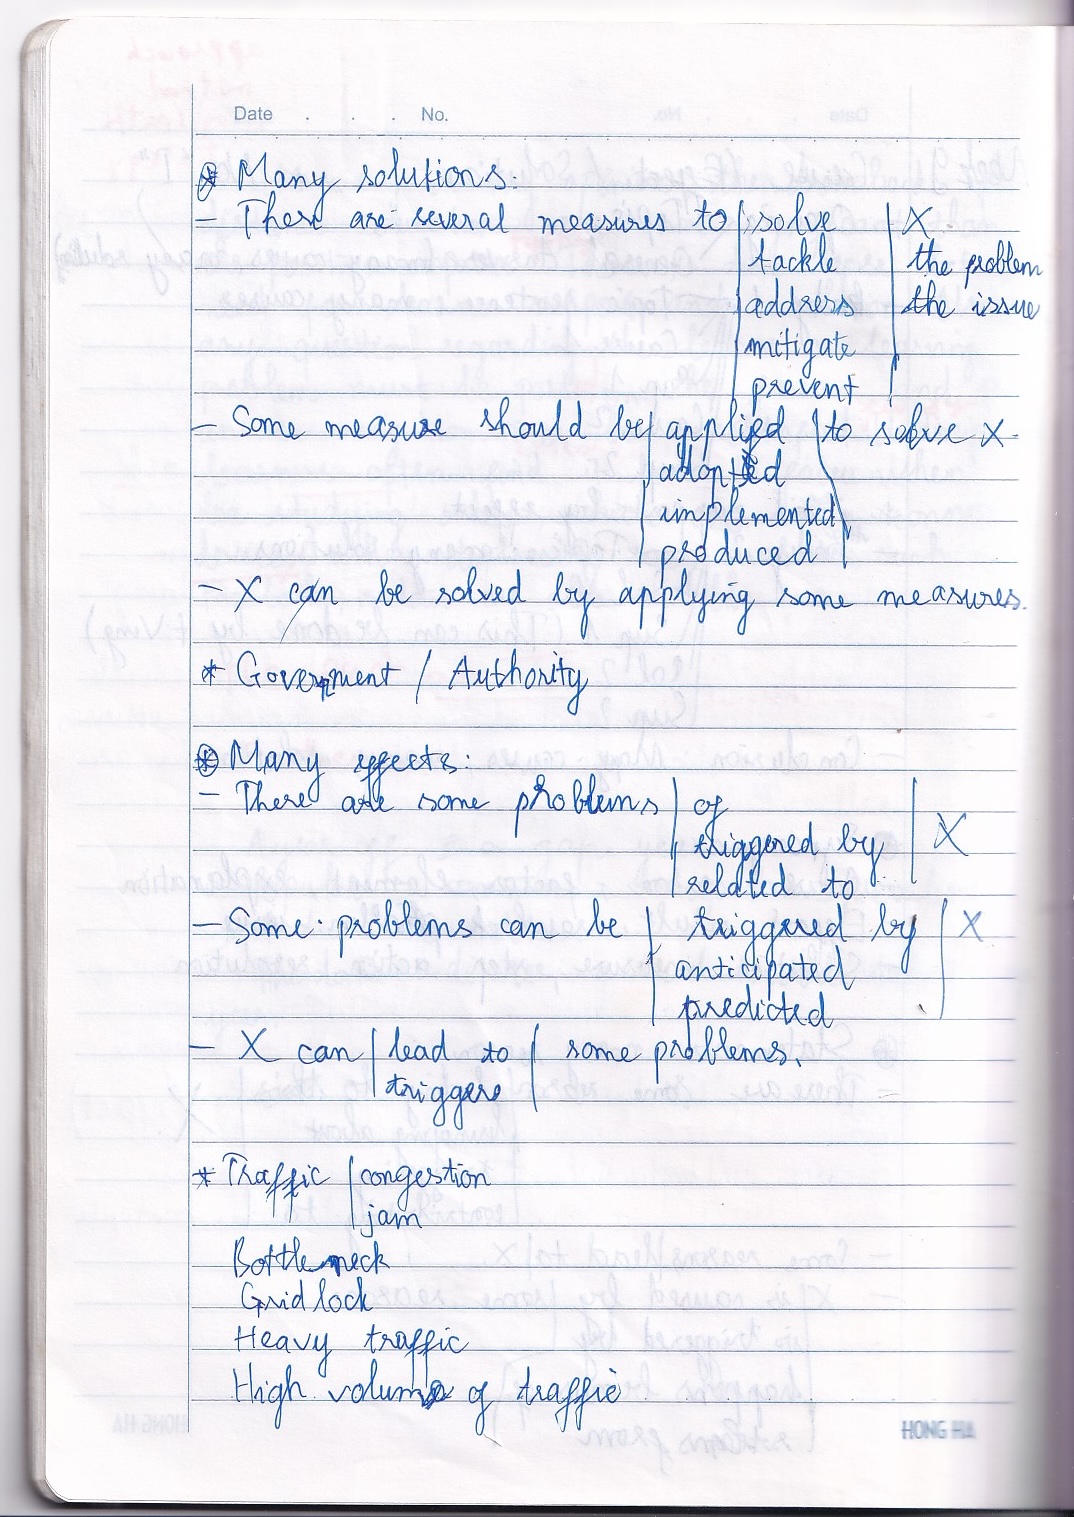 Date . . . No.
⊛ Many solutions:
- There are several measures to | solve | X
tackle | the problem
address | the issue
mitigate
prevent
- Some measure should be | applied | to solve X.
adopted
implemented
produced
- X can be solved by applying some measures.
* Government / Authority
⊛ Many effects:
- There are some problems | of | X
triggered by
related to
- Some problems can be | triggered by | X
anticipated
predicted
- X can | lead to | some problems.
triggers
* Traffic | congestion
jam
Bottleneck
Gridlock
Heavy traffic
High volume of traffic
HONG HA